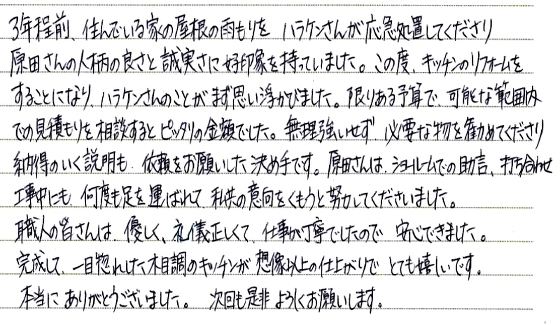 3年程前、住んでいる家の屋根の雨もりを ハラケンさんが応急処置してくださり
原田さんの人柄の良さと誠実さに好印象を持っていました。この度、キッチンのリフォームを
することになり、ハラケンさんのことがまず思い浮かびました。限りある予算で、可能な範囲内
での見積もりを相談するとピッタリの金額でした。無理強いせず、必要な物を勧めてくださり
納得のいく説明も、依頼をお願いした決め手です。原田さんは、ショールームでの助言、打ち合わせ
工事中にも、何度も足を運ばれて 私共の意向をくもうと努力してくださいました。
職人の皆さんは、優しく、礼儀正しくて、仕事が丁寧でしたので 安心できました。
完成して、一目惚れした木目調のキッチンが 想像以上の仕上がりで とても嬉しいです。
本当に ありがとうございました。 次回も是非 よろしくお願いします。